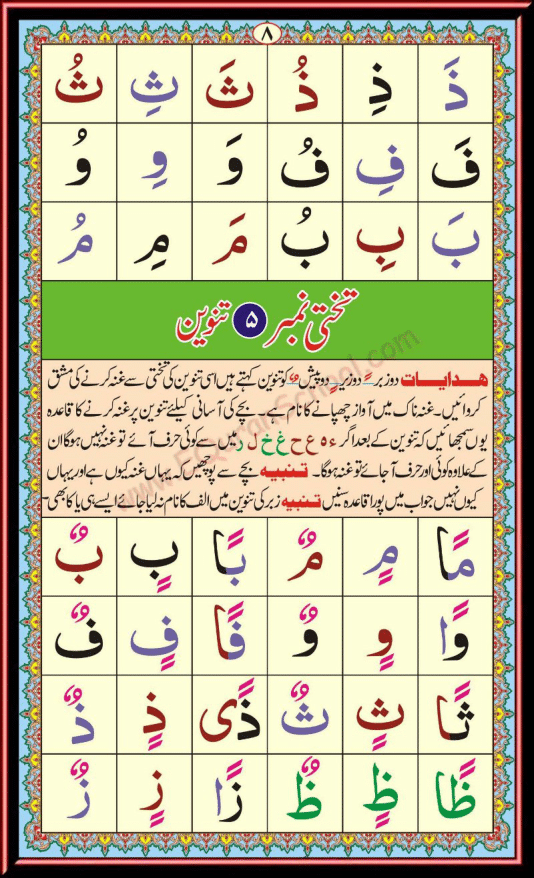 ٨
ذَ ذِ ذُ ثَ ثِ ثُ
فَ فِ فُ وَ وِ وُ
بَ بِ بُ مَ مِ مُ
تختی نمبر ۵ تنوین
ھدایات دو زبر ـً دو زیر ـٍ دو پیش ـٌ کو تنوین کہتے ہیں اسی تنوین کی تختی سے غنہ کرنے کی مشق
کروائیں۔ غنہ ناک میں آواز چھپانے کا نام ہے۔ بچے کی آسانی کیلئے تنوین پر غنہ کرنے کا قاعدہ
یوں سمجھائیں کہ تنوین کے بعد اگر ء ہ ع ح غ خ ل ر میں سے کوئی حرف آئے تو غنہ نہیں ہوگا ان
کے علاوہ کوئی اور حرف آجائے تو غنہ ہوگا۔ تنبیہ بچے سے پوچھیں کہ یہاں غنہ کیوں ہے اور یہاں
کیوں نہیں جواب میں پورا قاعدہ سنیں تنبیہ زبر کی تنوین میں الف کا نام نہ لیا جائے ایسے ہی یا کا بھی
مًا مٍ مٌ بًا بٍ بٌ
وًا وٍ وٌ فًا فٍ فٌ
ثًا ثٍ ثٌ ذًی ذٍ ذٌ
ظًا ظٍ ظٌ زًا زٍ زٌ